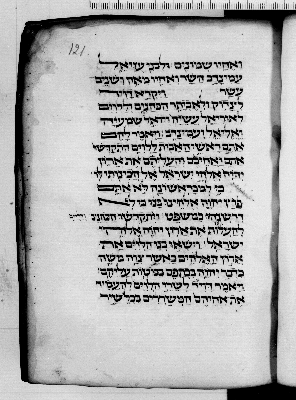 121
ואחיו שמונים: לבני עזיאל
עמינדב השר ואחיו מאה ושנים
עשר: ויקרא דויד
לצדוק ולאביתר הכהנים וללוים
לאוריאל עשיה ויואל שמעיה
ואליאל ועמינדב: ויאמר להם
אתם ראשי האבות ללוים התקדשו
אתם ואחיכם והעליתם את ארון
יהוה אלהי ישראל אל הכינותי לו:
כי למבראשונה לא אתם
פרץ יהוה אלהינו בנו כי לא
דרשנהו כמשפט: ויתקדשו הכהנים והלוים
להעלות את ארון יהוה אלהי
ישראל: וישאו בני הלוים את
ארון האלהים כאשר צוה משה
כדבר יהוה בכתפם במטות עליהם:
ויאמר דויד לשרי הלוים להעמיד
את אחיהם המשררים בכלי שיר